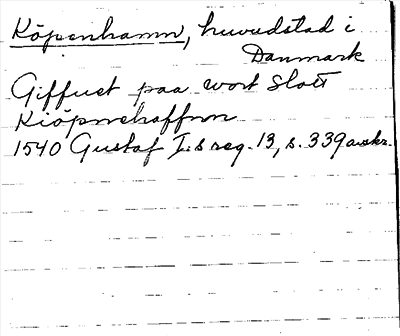 Köpenhamn, huvudstad i
Danmark
Giffuet paa wort Slott
Kiöpnehaffnn
1540 Gustaf I:s reg. 13, s. 339 avskr.